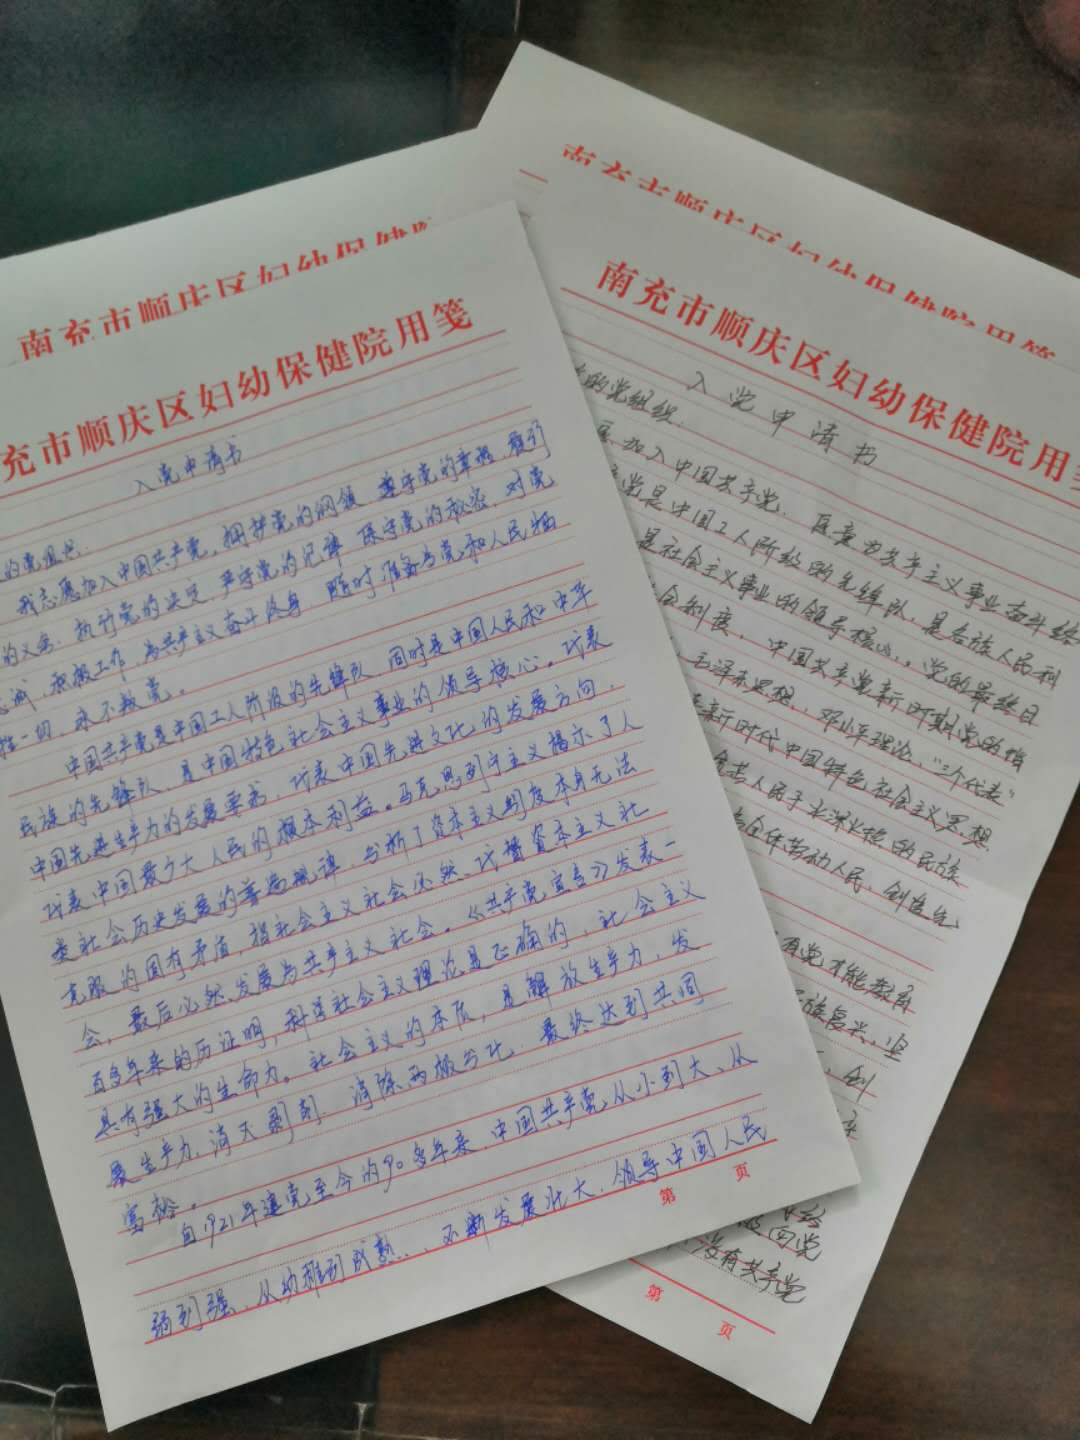 南充市顺庆区妇幼保健院
南充市顺庆区妇幼保健院用笺
充市顺庆区妇幼保健院用笺
入党申请书
的党组织:
我志愿加入中国共产党,拥护党的纲领,遵守党的章程,履行
的义务,执行党的决定,严守党的纪律,保守党的秘密,对党
忠诚,积极工作,为共产主义奋斗终身,随时准备为党和人民牺
牲一切,永不叛党。
中国共产党是中国工人阶级的先锋队,同时是中国人民和中华
民族的先锋队,是中国特色社会主义事业的领导核心。代表
中国先进生产力的发展要求,代表中国先进文化的发展方向,
代表中国最广大人民的根本利益。马克思列宁主义揭示了人
类社会历史发展的普遍规律,分析了资本主义制度本身无法
克服的固有矛盾,指社会主义社会必然代替资本主义社
会,最后必然发展为共产主义社会。《共产党宣言》发表一
百多年来的历证明,科学社会主义理论是正确的,社会主义
具有强大的生命力。社会主义的本质,是解放生产力,发
展生产力,消灭剥削,消除两极分化,最终达到共同
富裕。
自1921年建党至今的90多年来,中国共产党从小到大、从
弱到强、从幼稚到成熟、不断发展壮大,领导中国人民
第 页
南充市顺庆区妇幼保健院用笺
南充市顺庆区妇幼保健院用笺
入党申请书
的党组织:
加入中国共产党,愿意为共产主义事业奋斗终
党是中国工人阶级的先锋队,是各族人民利
是社会主义事业的领导核心。党的最终目
会制度,中国共产党新时期党的指
毛泽东思想,邓小平理论,"三个代表"
新时代中国特色社会主义思想
人民于水深火热的民族
全体劳动人民,创造
有党才能教育
族复兴,
创
向党
没有共产党
第 页